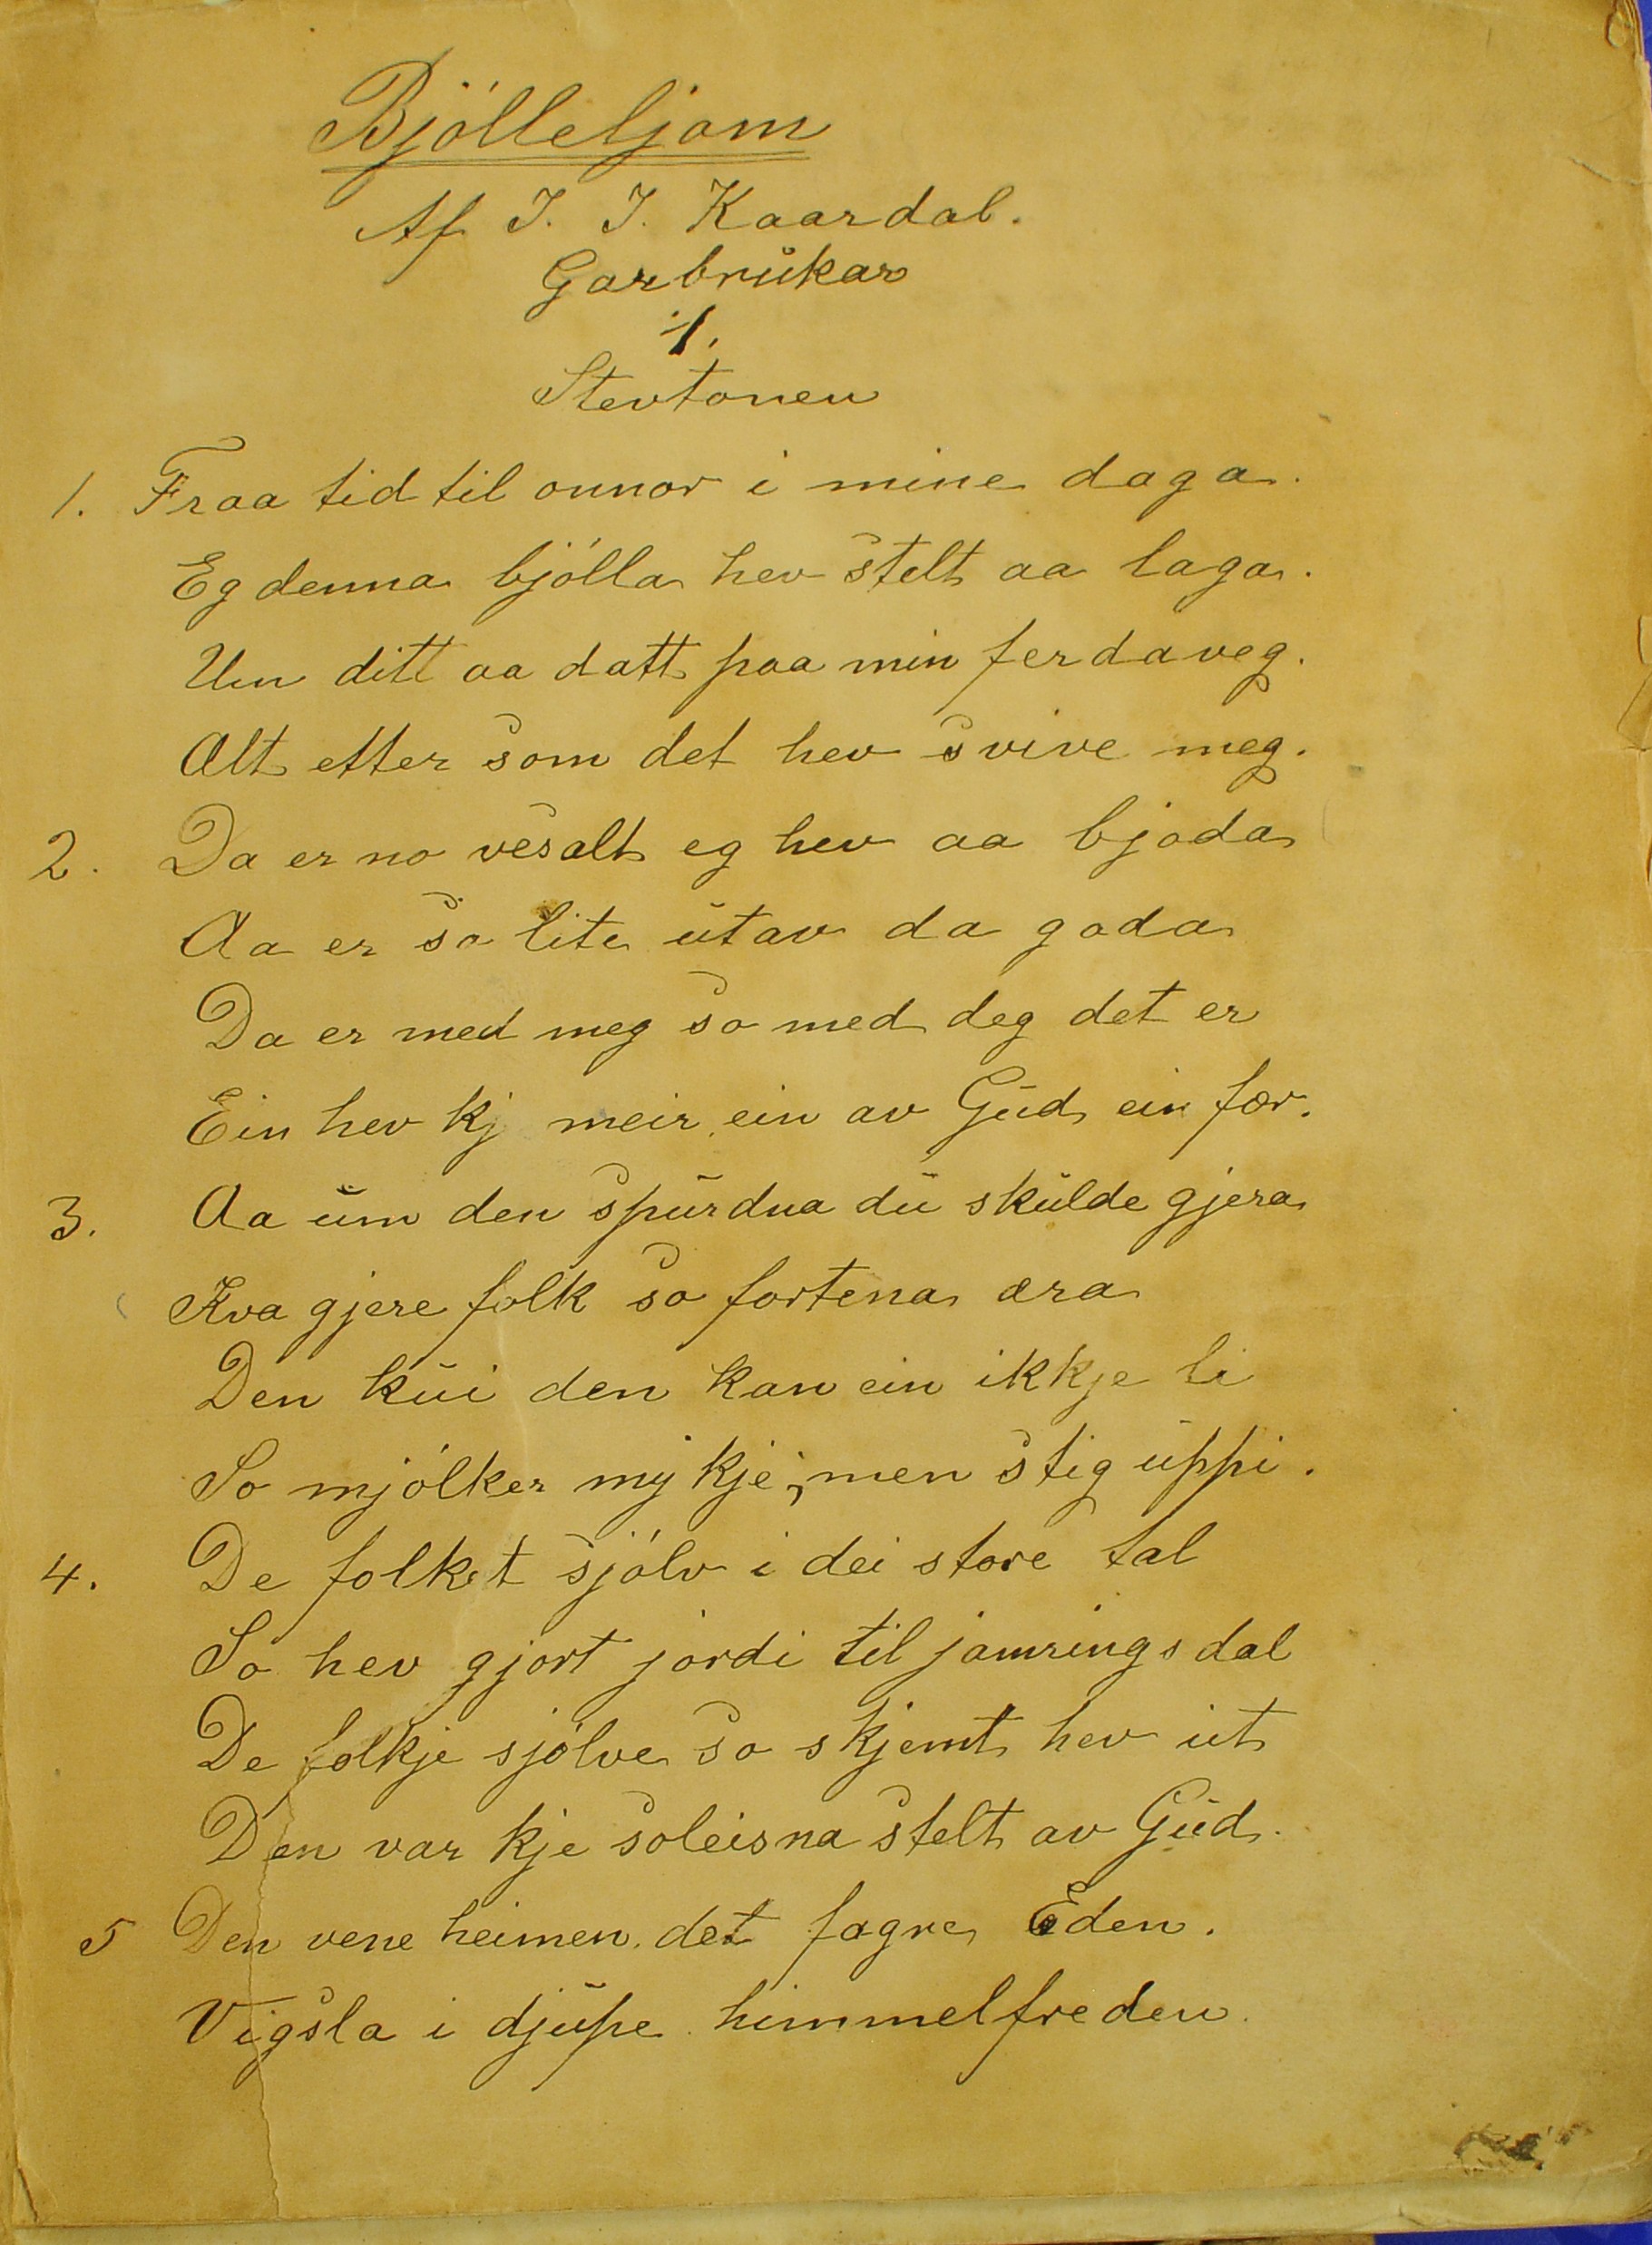 Bjölleljom
Af J. J. Kaardal.
Garbrukar
1.
Stevtonen
1. Fraa tid til onnor i mine daga.
Eg denna bjölla hev stelt aa laga.
Um ditt aa datt paa min ferdaveg.
Alt etter som det hev svive meg.
2. Da er no vesalt eg hev aa bjoda
Aa er so lite utav da goda
Da er med meg so med deg det er
Ein hev kj meir ein av Gud ein fær.
3. Aa um den spurdna du skulde gjera
Kva gjere folk so fortena æra
Den kui den kan ein ikkje li
So mjölker mykje, men stig uppi.
4. De folket sjölv i dei store tal
So hev gjort jordi til jamringsdal
De folkje sjölve so skjemt hev ut
Den var kje soleisna stelt av Gud.
5 Den vene heimen. det fagre Eden.
Vigsla i djupe himmelfreden.